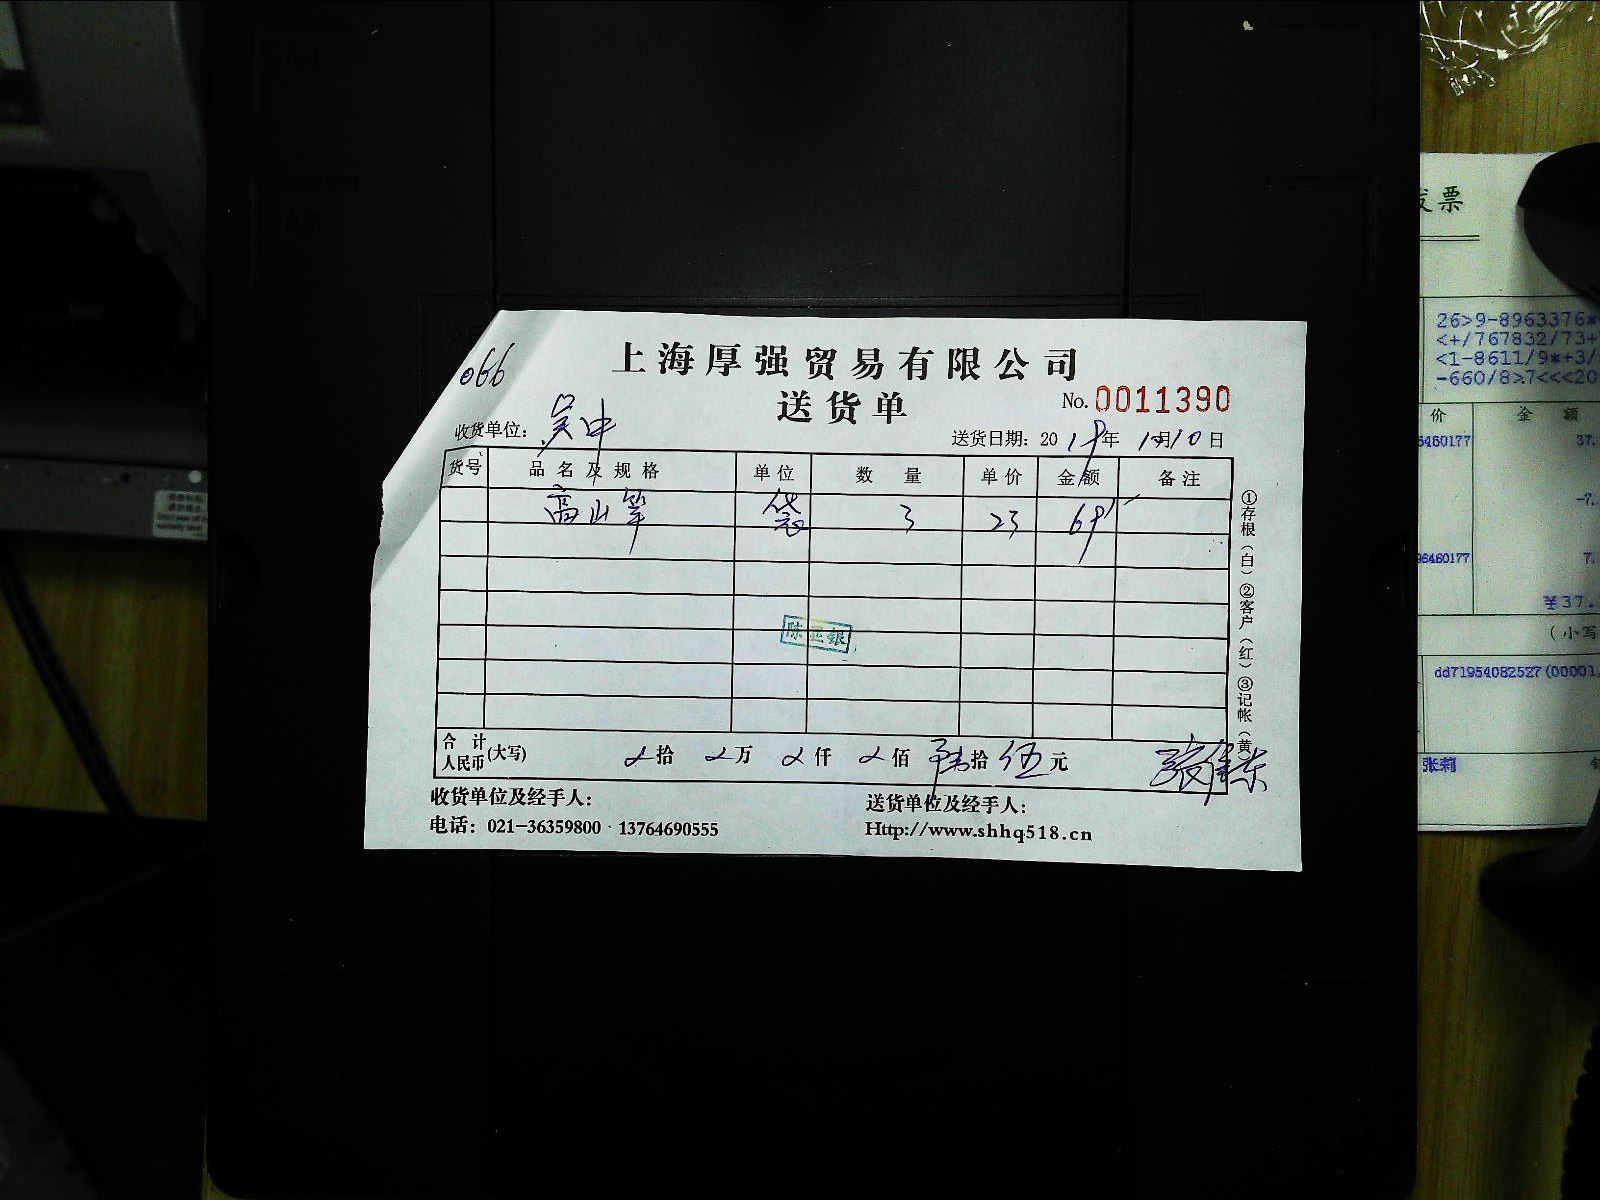 066
上海厚强贸易有限公司
送货单
No. 0011390
收货单位: 吴中
送货日期: 2019年 10月10日
货号 品名及规格 单位 数量 单价 金额 备注
高山笋 袋 3 23 69
①存根(白)②客户(红)③记帐(黄
合计人民币(大写) 拾 万 仟 佰 陆拾伍元
收货单位及经手人:
送货单位及经手人:
电话: 021-36359800 13764690555
Http://www.shhq518.cn
发票
26>9-8963376*
<+/767832/73+
<1-8611/9*+3/
-660/8>7<<<20
价 金额
6460177 37.
-7.
96460177 7.
¥37.
(小写
dd71954082527(00001
张莉